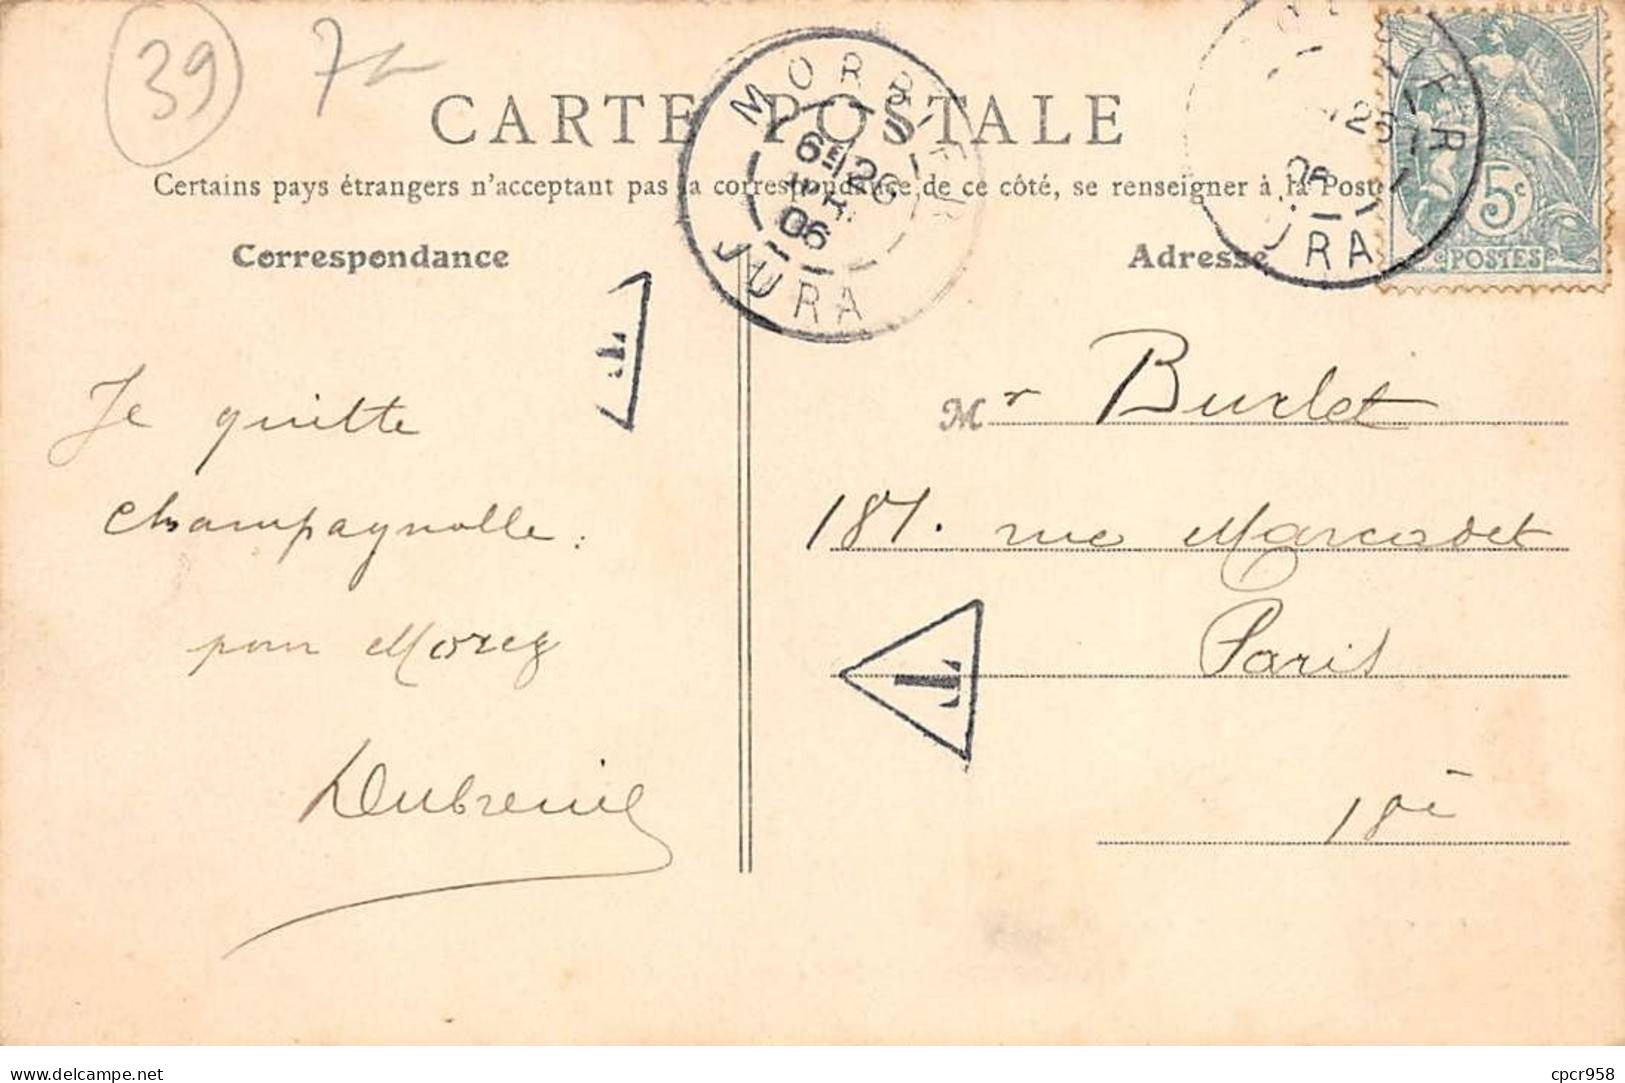 39 7
CARTE POSTALE
Certains pays étrangers n'acceptant pas la correspondance de ce côté, se renseigner à la Poste
Correspondance
Adresse
MORBIER
6E 26
06
JURA
26
06
JURA
5c
POSTES
T
Je quitte
Champagnolle.
pour Morez
Dubreuil
Mr Burlet
187. rue Marcadet
Paris
18è
T
delcampe.net
cpcr958